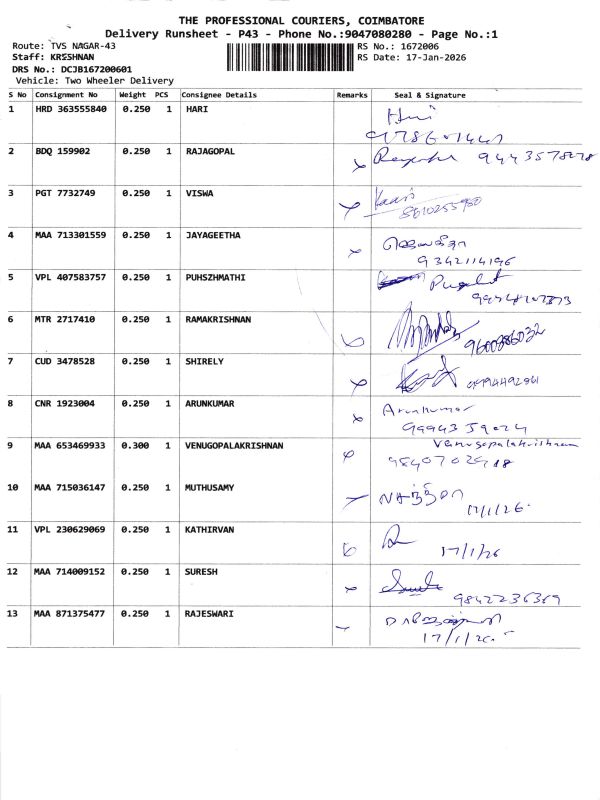 THE PROFESSIONAL COURIERS, COIMBATORE
Delivery Runsheet - P43 - Phone No.:9047080280 - Page No.:1
Route: TVS NAGAR-43
RS No.: 1672006
Staff: KRISHNAN
RS Date: 17-Jan-2026
DRS No.: DCJB167200601
Vehicle: Two Wheeler Delivery
S No Consignment No Weight PCS Consignee Details Remarks Seal & Signature
1 HRD 363555840 0.250 1 HARI Hari
2 BDQ 159902 0.250 1 RAJAGOPAL
3 PGT 7732749 0.250 1 VISWA
8610255980
4 MAA 713301559 0.250 1 JAYAGEETHA ஜெயகீதா
9342114196
5 VPL 407583757 0.250 1 PUHSZHMATHI
6 MTR 2717410 0.250 1 RAMAKRISHNAN 9600386032
7 CUD 3478528 0.250 1 SHIRELY
8 CNR 1923004 0.250 1 ARUNKUMAR Arunkumar
9994359024
9 MAA 653469933 0.300 1 VENUGOPALAKRISHNAN Venugopalakrishnan
10 MAA 715036147 0.250 1 MUTHUSAMY
17/1/26.
11 VPL 230629069 0.250 1 KATHIRVAN
17/1/26
12 MAA 714009152 0.250 1 SURESH
9842236369
13 MAA 871375477 0.250 1 RAJESWARI
17/1/26